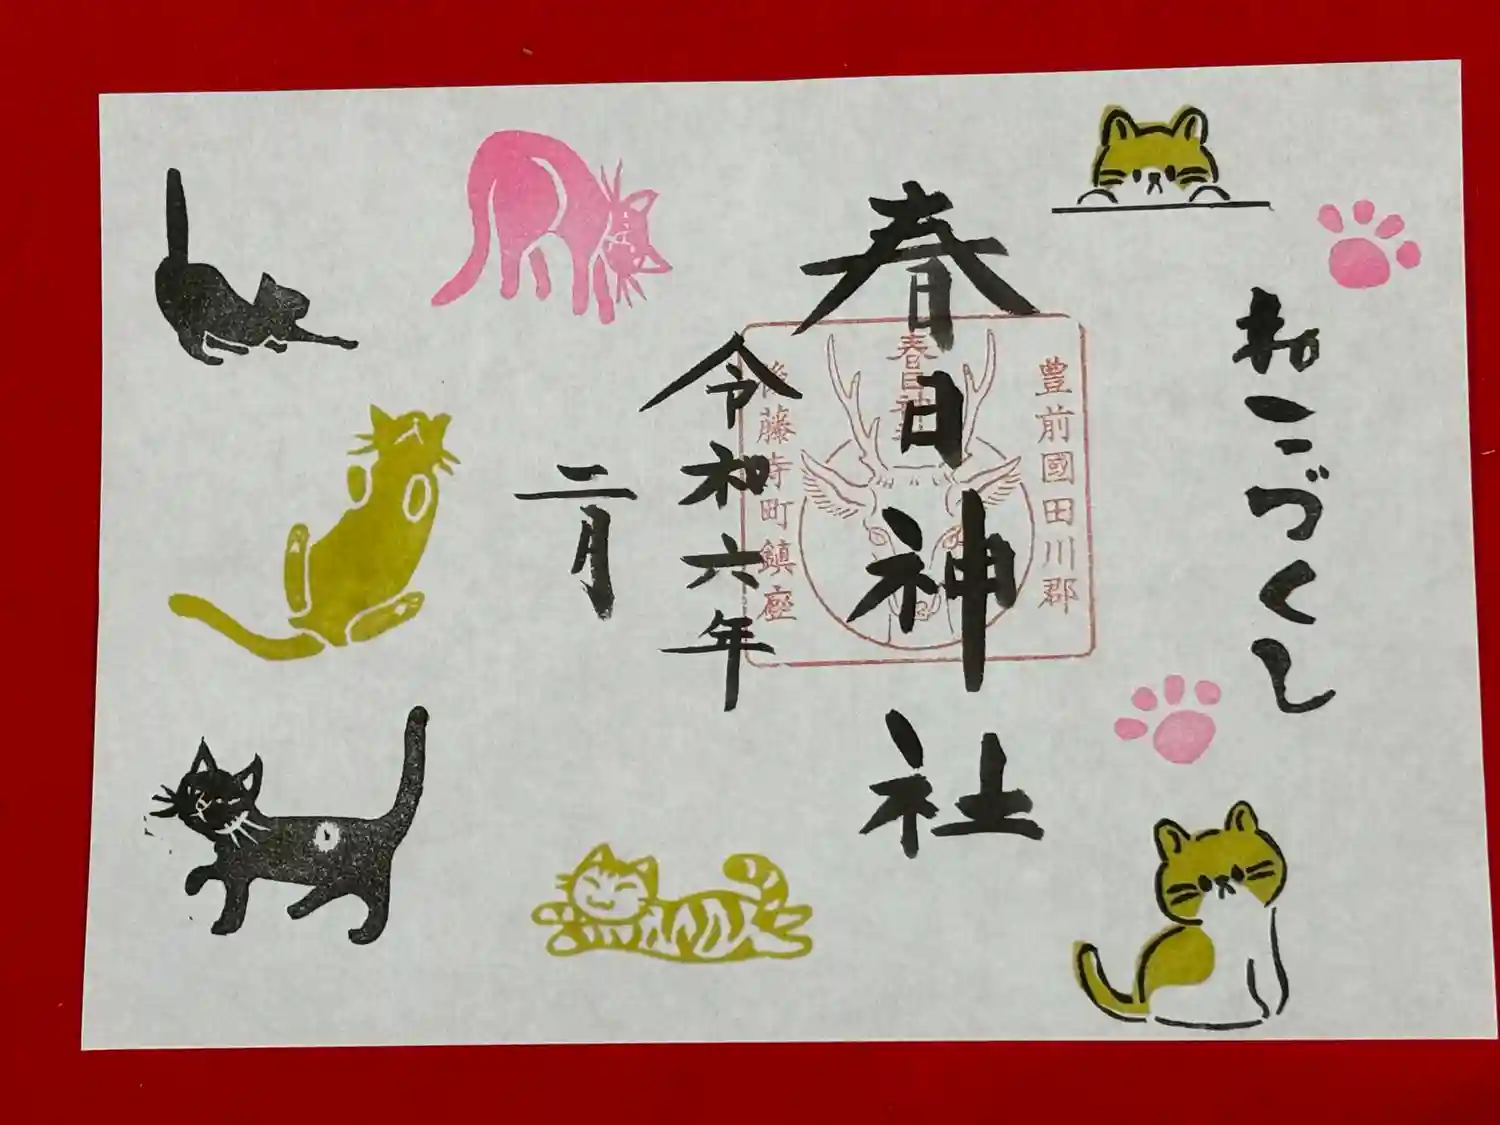 ねこづくし
春日神社
令和六年
二月
豊前國田川郡
春日神社
後藤寺町鎮座